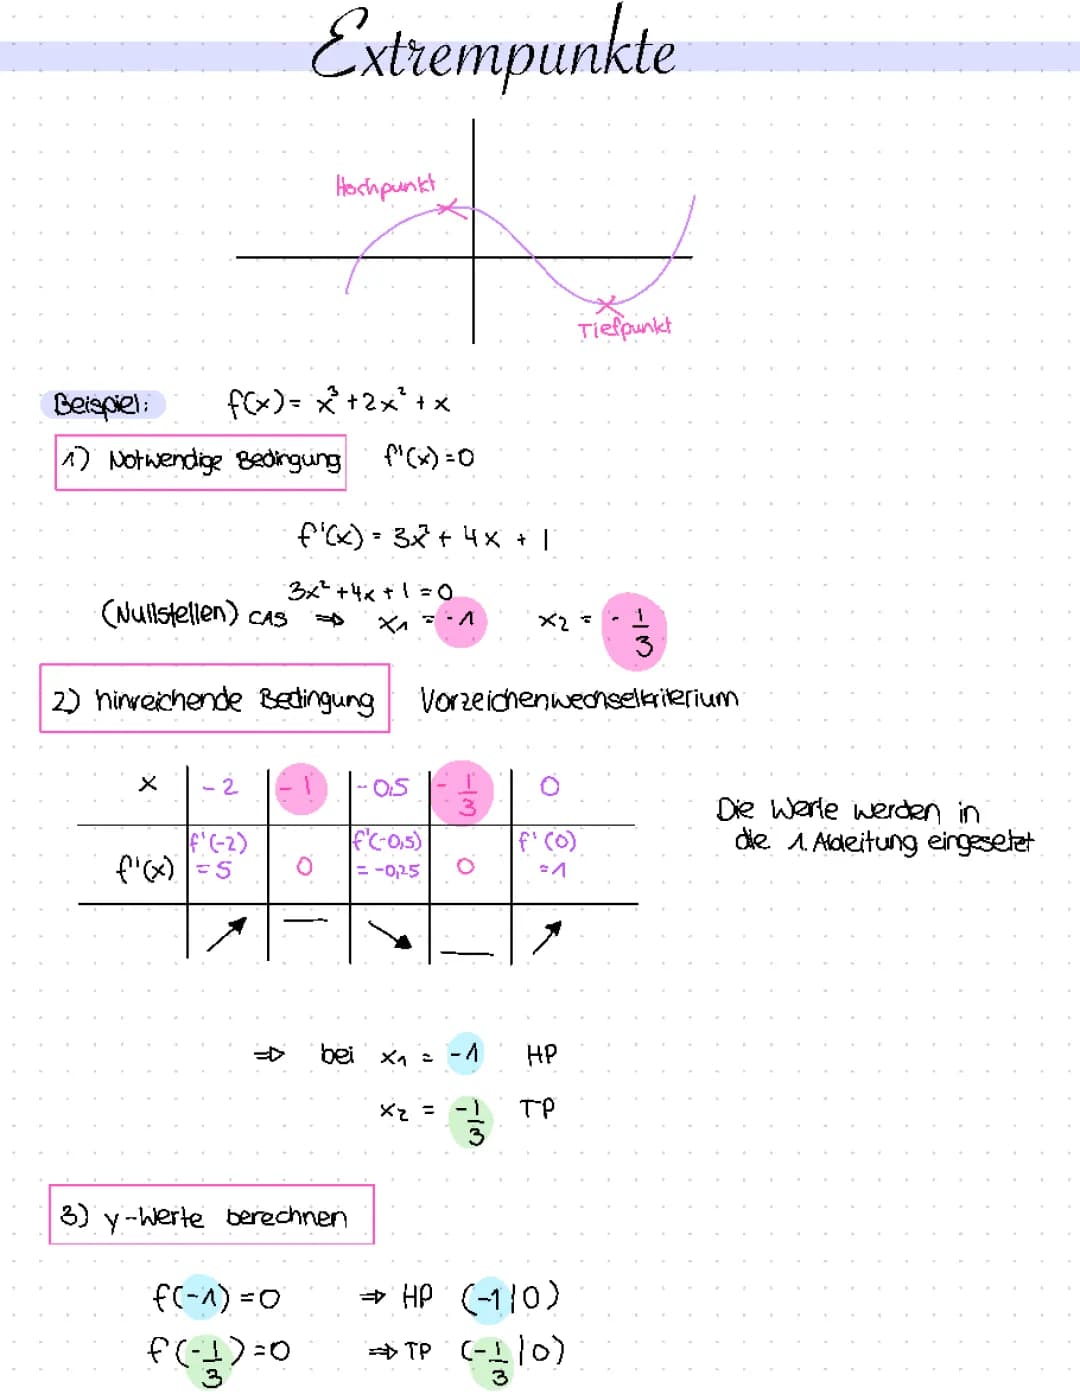 Extrempunkte
Hochpunkt
Tiefpunkt
Beispiel: f(x) = x³ + 2x² + x
1) Notwendige Bedingung f'(x) = 0
f'(x) = 3x² + 4x + 1
3x² + 4x + 1 = 0
(Nullstellen) CAS ⇒ x₁ = -1 x₂ = -1/3
2) hinreichende Bedingung Vorzeichenwechselkriterium
x -2 -1 -0,5 -1/3 0
f'(x) f'(-2) = 5 0 f'(-0,5) = -0,25 0 f'(0) = 1
Die Werte werden in
die 1. Ableitung eingesetzt
⇒ bei x₁ = -1 HP
x₂ = -1/3 TP
3) y-Werte berechnen
f(-1) = 0 ⇒ HP (-1|0)
f(-1/3) = 0 ⇒ TP (-1/3|0)